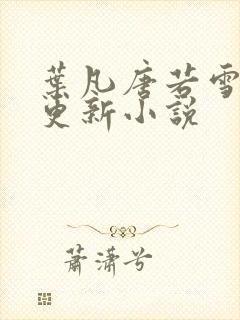 葉凡唐若雪
更新小說
蕭瀟兮